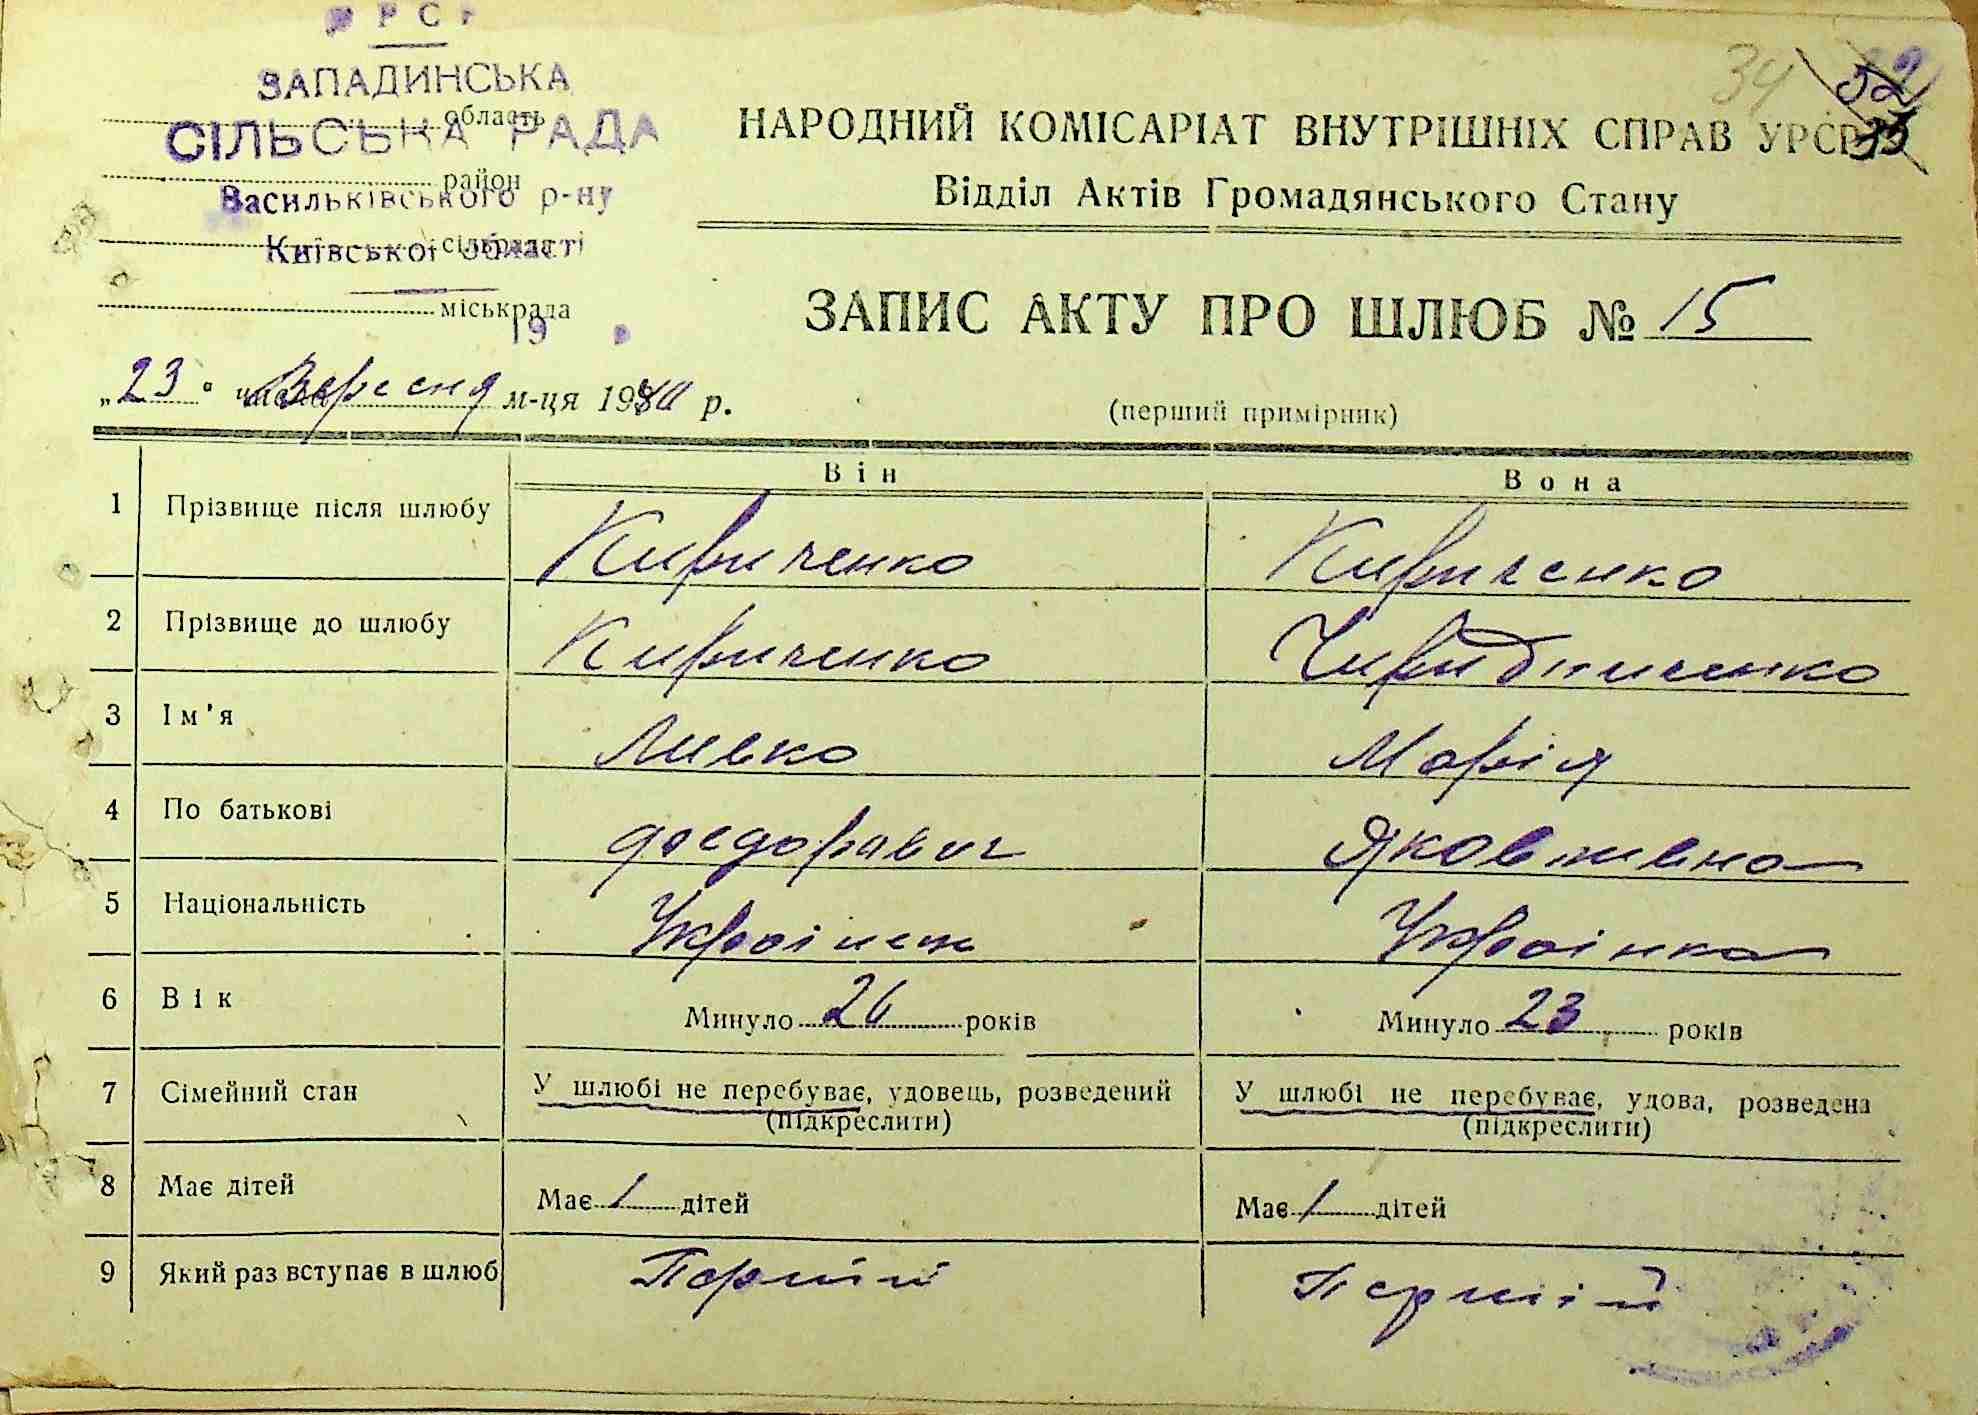 РС
ЗАПАДИНСЬКА
область
СІЛЬСЬКА РАДА
район
Васильківського р-ну
сільрада
Київської області
міськрада
19
34
52
35
НАРОДНИЙ КОМІСАРІАТ ВНУТРІШНІХ СПРАВ УРСР
Відділ Актів Громадянського Стану
ЗАПИС АКТУ ПРО ШЛЮБ № 15
„23" числа Вересня м-ця 1940 р.
(перший примірник)
Він Вона
1 Прізвище після шлюбу Кириченко Кириченко
2 Прізвище до шлюбу Кириченко Чиридниченко
3 Ім'я Левко Марія
4 По батькові Федоравич Яковливна
5 Національність Україиець Українка
6 Вік Минуло 26 років Минуло 23 років
7 Сімейний стан У шлюбі не перебуває, удовець, розведений У шлюбі не перебуває, удова, розведена
(підкреслити) (підкреслити)
8 Має дітей Має / дітей Має / дітей
9 Який раз вступає в шлюб Перший Перший